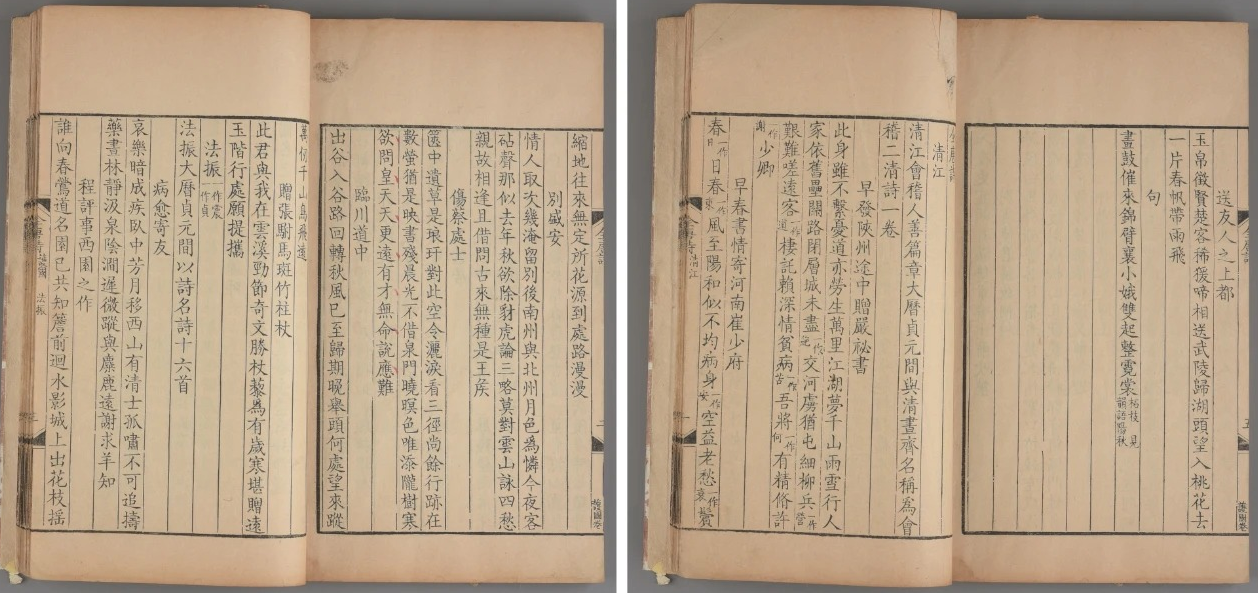 縮地往來無定所花源到處路漫漫
別盛安
情人取次幾淹留別後南州與北州月色爲憐今夜客
砧聲那似去年秋欲除豺虎論三略莫對雲山詠四愁
親故相逢且借問古來無種是王侯
傷蔡處士
篋中遺草是琅玕對此空令灑淚看三徑尚餘行跡在
數螢猶是映書殘晨光不借泉門曉暝色唯添隴樹寒
欲問皇天天更遠有才無命說應難
臨川道中
出谷入谷路回轉秋風已至歸期晚舉頭何處望來蹤
萬仞千山鳥飛遠
贈張駙馬斑竹柱杖
此君與我在雲溪勁節奇文勝杖藜爲有歲寒堪贈遠
玉階行處願提攜
法振一作震一作貞
法振大曆貞元間以詩名詩十六首
病愈寄友
哀樂暗成疾臥中芳月移西山有清士孤嘯不可追擣
藥晝林靜汲泉陰澗遲微蹤與麋鹿遠謝求羊知
程評事西園之作
誰向春鶯道名園已共知簷前迴水影城上出花枝搖
送友人之上都
玉帛徵賢楚客稀猿啼相送武陵歸湖頭望入桃花去
一片春帆帶雨飛
句
畫鼓催來錦臂襄小娥雙起整霓裳柘枝見韻語陽秋
清江
清江會稽人善篇章大曆貞元間與清晝齊名稱爲會
稽二清詩一卷
早發陝州途中贈嚴祕書
此身雖不繫憂道亦勞生萬里江湖夢千山雨雪行人
家依舊壘關路閉層城未盡一作交河虜猶屯細柳兵一作營
艱難嗟遠客一作道棲託賴深情貧病一作苦吾將一作何有精修許
一作謝少卿
早春書情寄河南崔少府
春一作日日春一作東風至陽和似不均病身一作安空益老愁一作衰鬢